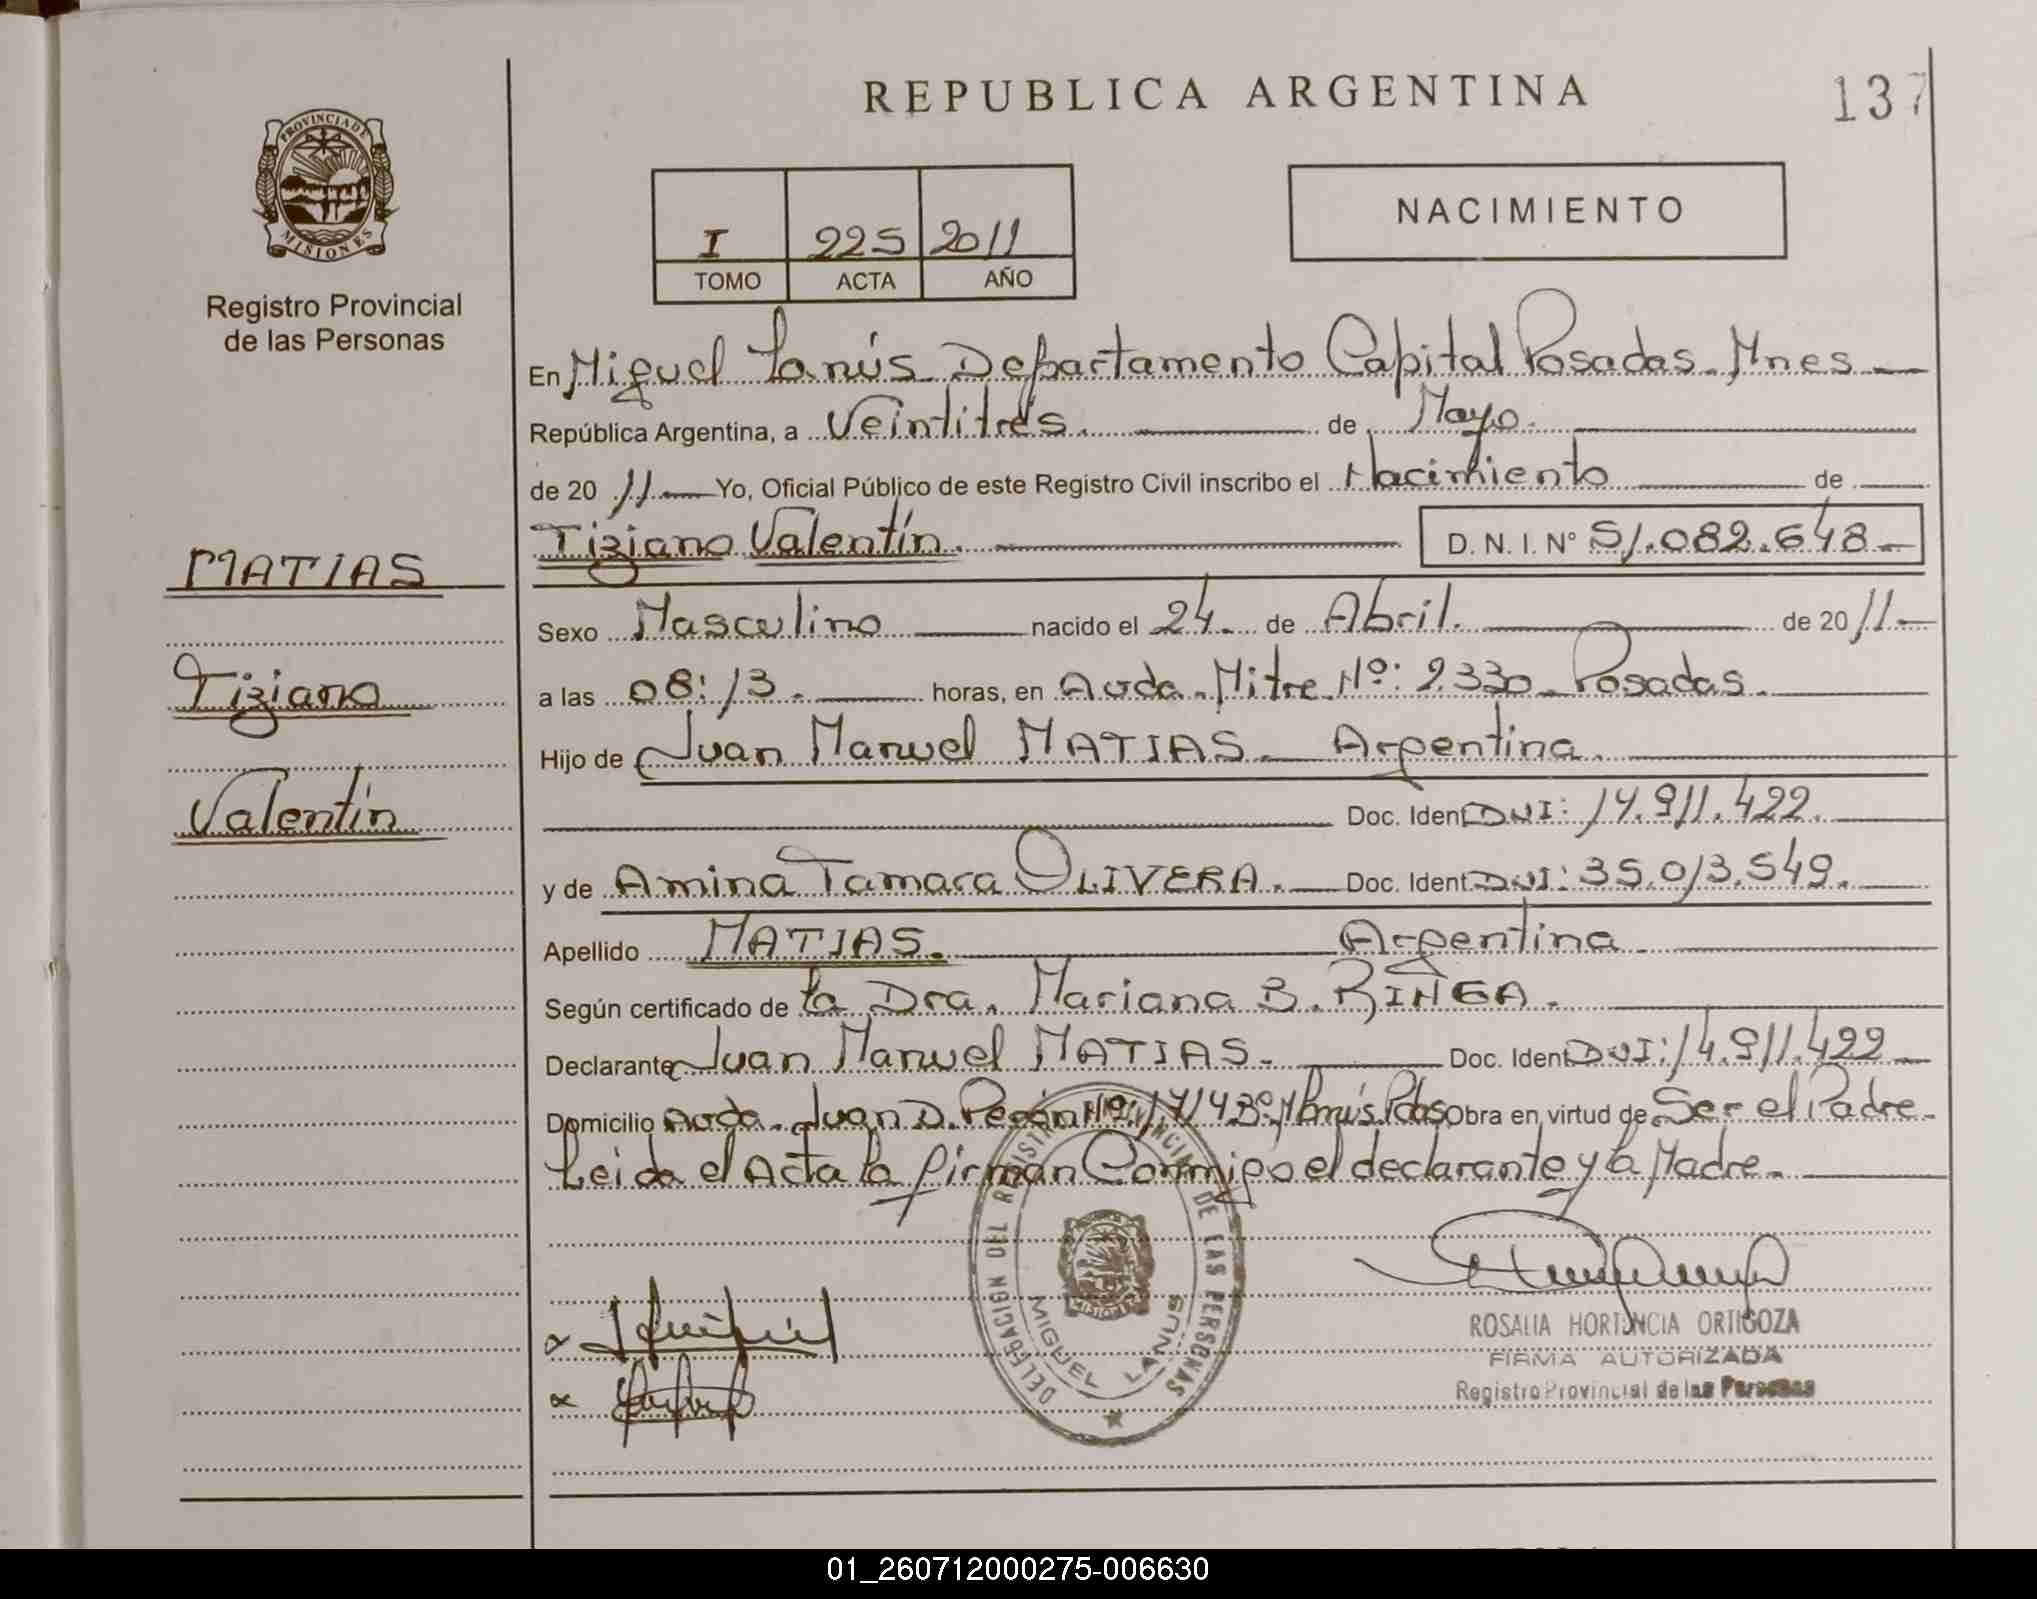 REPUBLICA ARGENTINA
137
PROVINCIA DE
MISIONES
Registro Provincial
de las Personas
NACIMIENTO
I 225 2011
TOMO ACTA AÑO
En Miguel Lanús Departamento Capital Posadas - Mnes
República Argentina, a Veintitrés. de Mayo.
de 2011 Yo, Oficial Público de este Registro Civil inscribo el Nacimiento de
Tiziano Valentín. D. N. I. Nº 51.082.648
MATIAS
Tiziano
Valentín
Sexo Masculino nacido el 24 de Abril. de 2011
a las 08:13. horas, en Avda. Mitre Nº: 2.330 - Posadas.
Hijo de Juan Manuel MATIAS - Argentina.
Doc. Ident DNI: 14.911.422.
y de Amina Tamara OLIVERA. Doc. Ident DNI: 35.013.549.
Apellido MATIAS. Argentina
Según certificado de la Dra. Mariana B.
Declarante Juan Manuel MATIAS. Doc. Ident DNI: 14.911.422
Domicilio Avda. Juan D. Perón Nº Lanús Pdas Obra en virtud de Ser el Padre.
Leida el Acta la firman Conmigo el declarante y la Madre.
DELEGACION DEL REGISTRO PROVINCIAL DE LAS PERSONAS
MISIONES
MIGUEL LANUS
ROSALIA HORTENCIA ORTIGOZA
FIRMA AUTORIZADA
Registro Provincial de las Personas
01_260712000275-006630